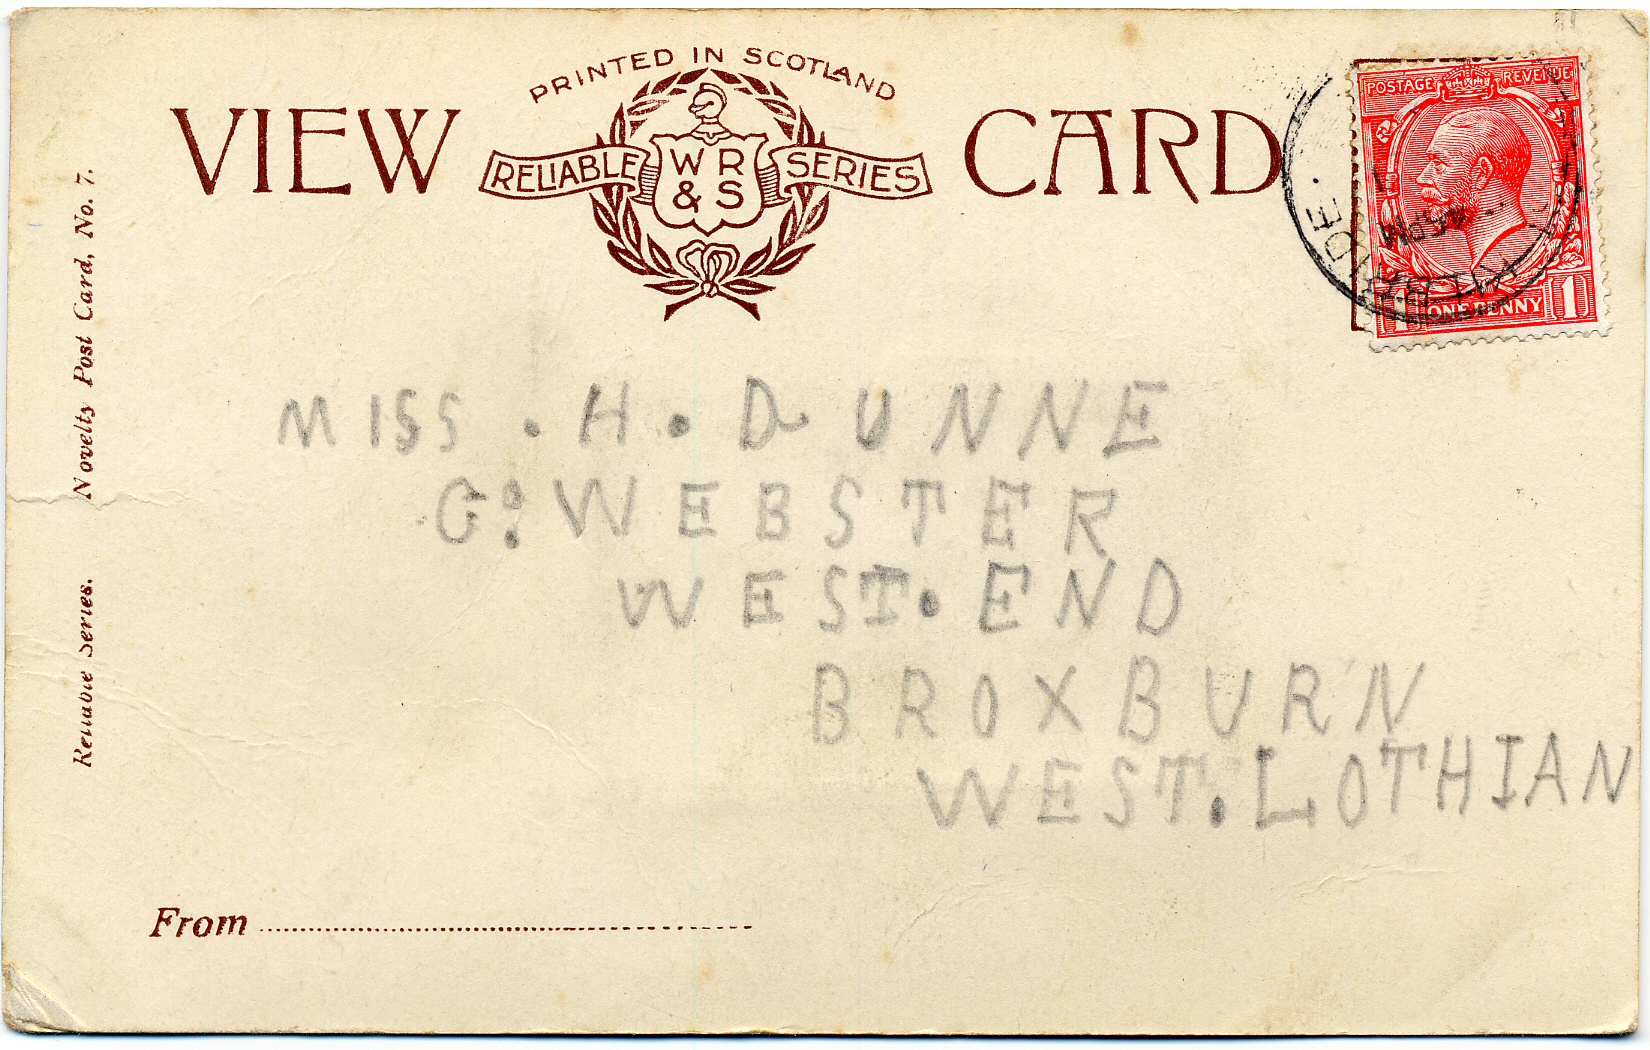 PRINTED IN SCOTLAND
VIEW CARD
RELIABLE W R & S SERIES
POSTAGE REVENUE
1 ONE PENNY 1
Reliable Series. Novelty Post Card, No. 7.
MISS . H . DUNNE
C: WEBSTER
WEST. END
BROXBURN
WEST. LOTHIAN
From